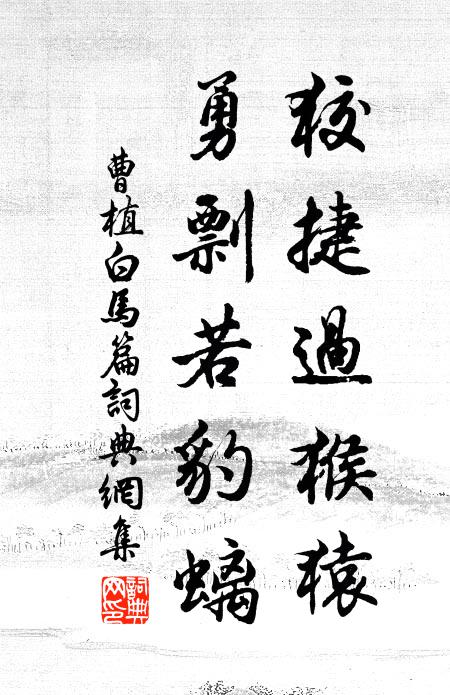 狡捷過猴猿
勇剽若豹螭
曹植白馬篇詞典網集
詞典網印